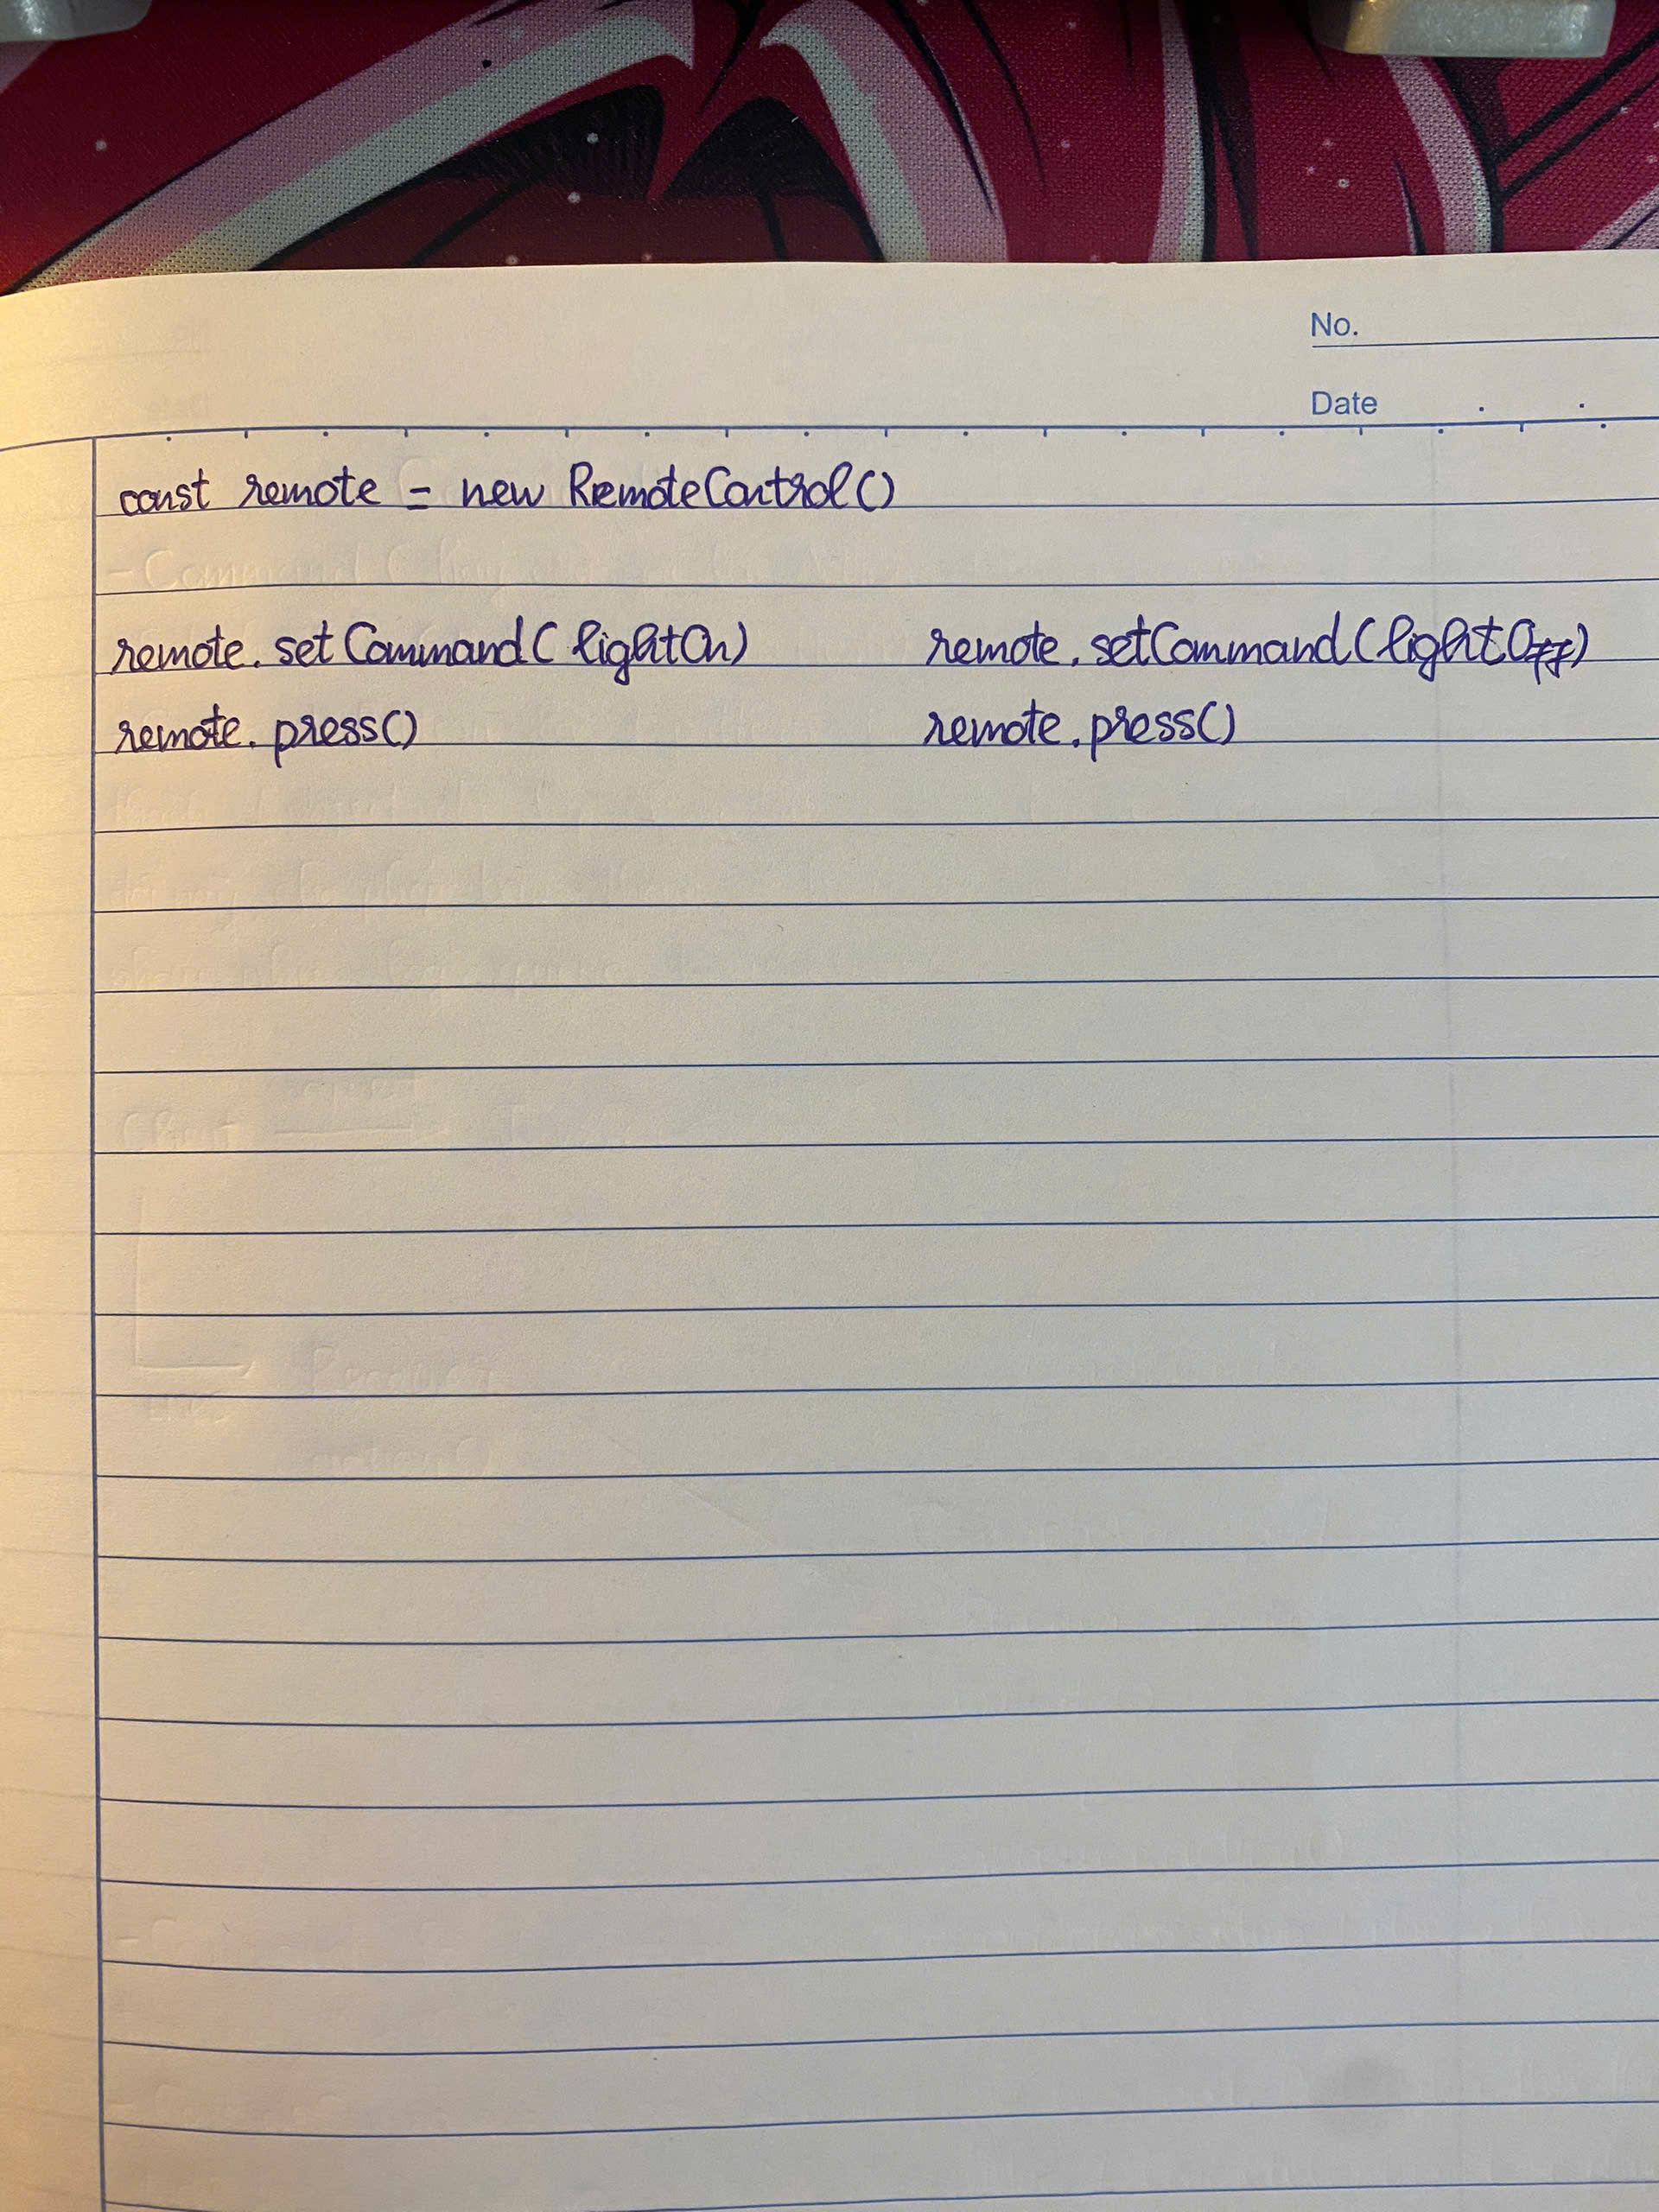 No.
Date
const remote = new RemoteControl()
remote.setCommand(lightOn)
remote.press()
remote.setCommand(lightOff)
remote.press()